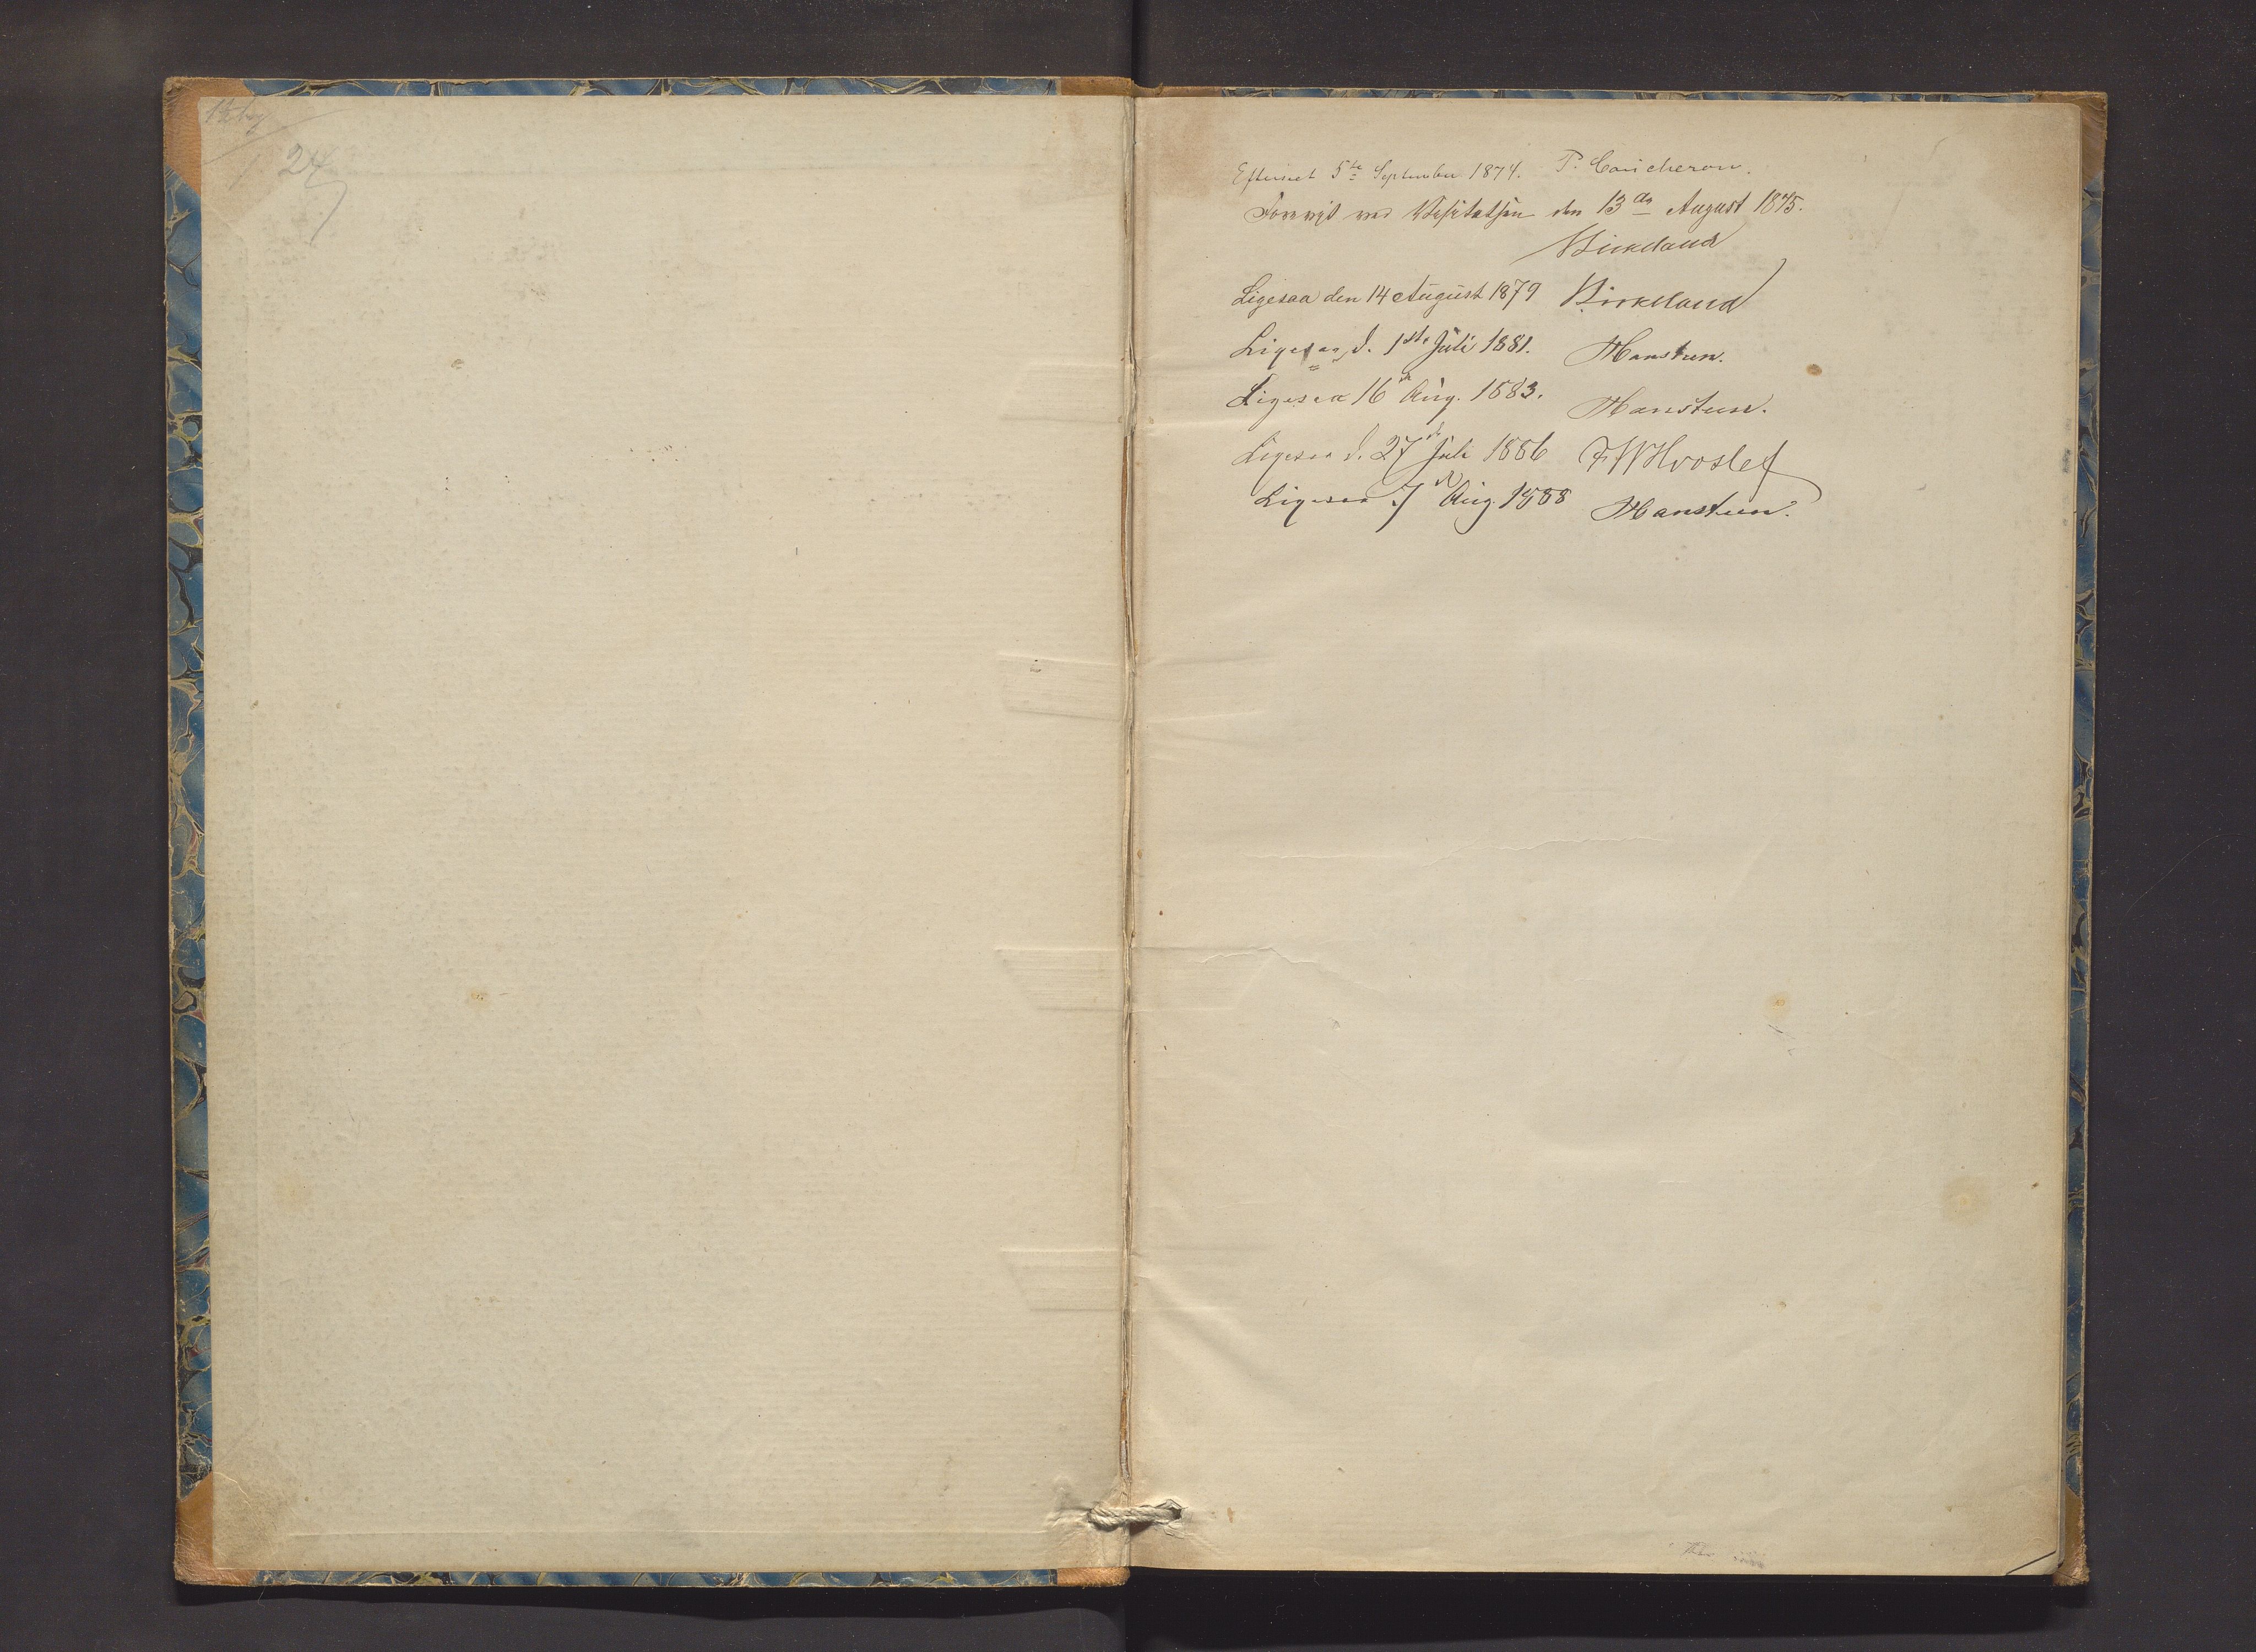 24
Efterseet 5te September 1874. P. Coucheron.
Forevist ved Visitatsen den 13de August 1875.
Birkeland
Ligesaa den 14 August 1879 Birkeland
Ligesaa, d. 1ste Juli 1881. Hansteen.
Ligesaa 16de Aug. 1883. Hansteen.
Ligesaa d. 27de Juli 1886 FWHvoslef
Ligesaa 7de Aug. 1888 Hansteen.